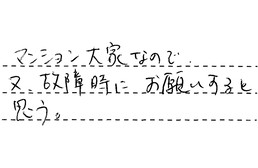 マンション大家なので.
又、故障時に お願いすると
思う。